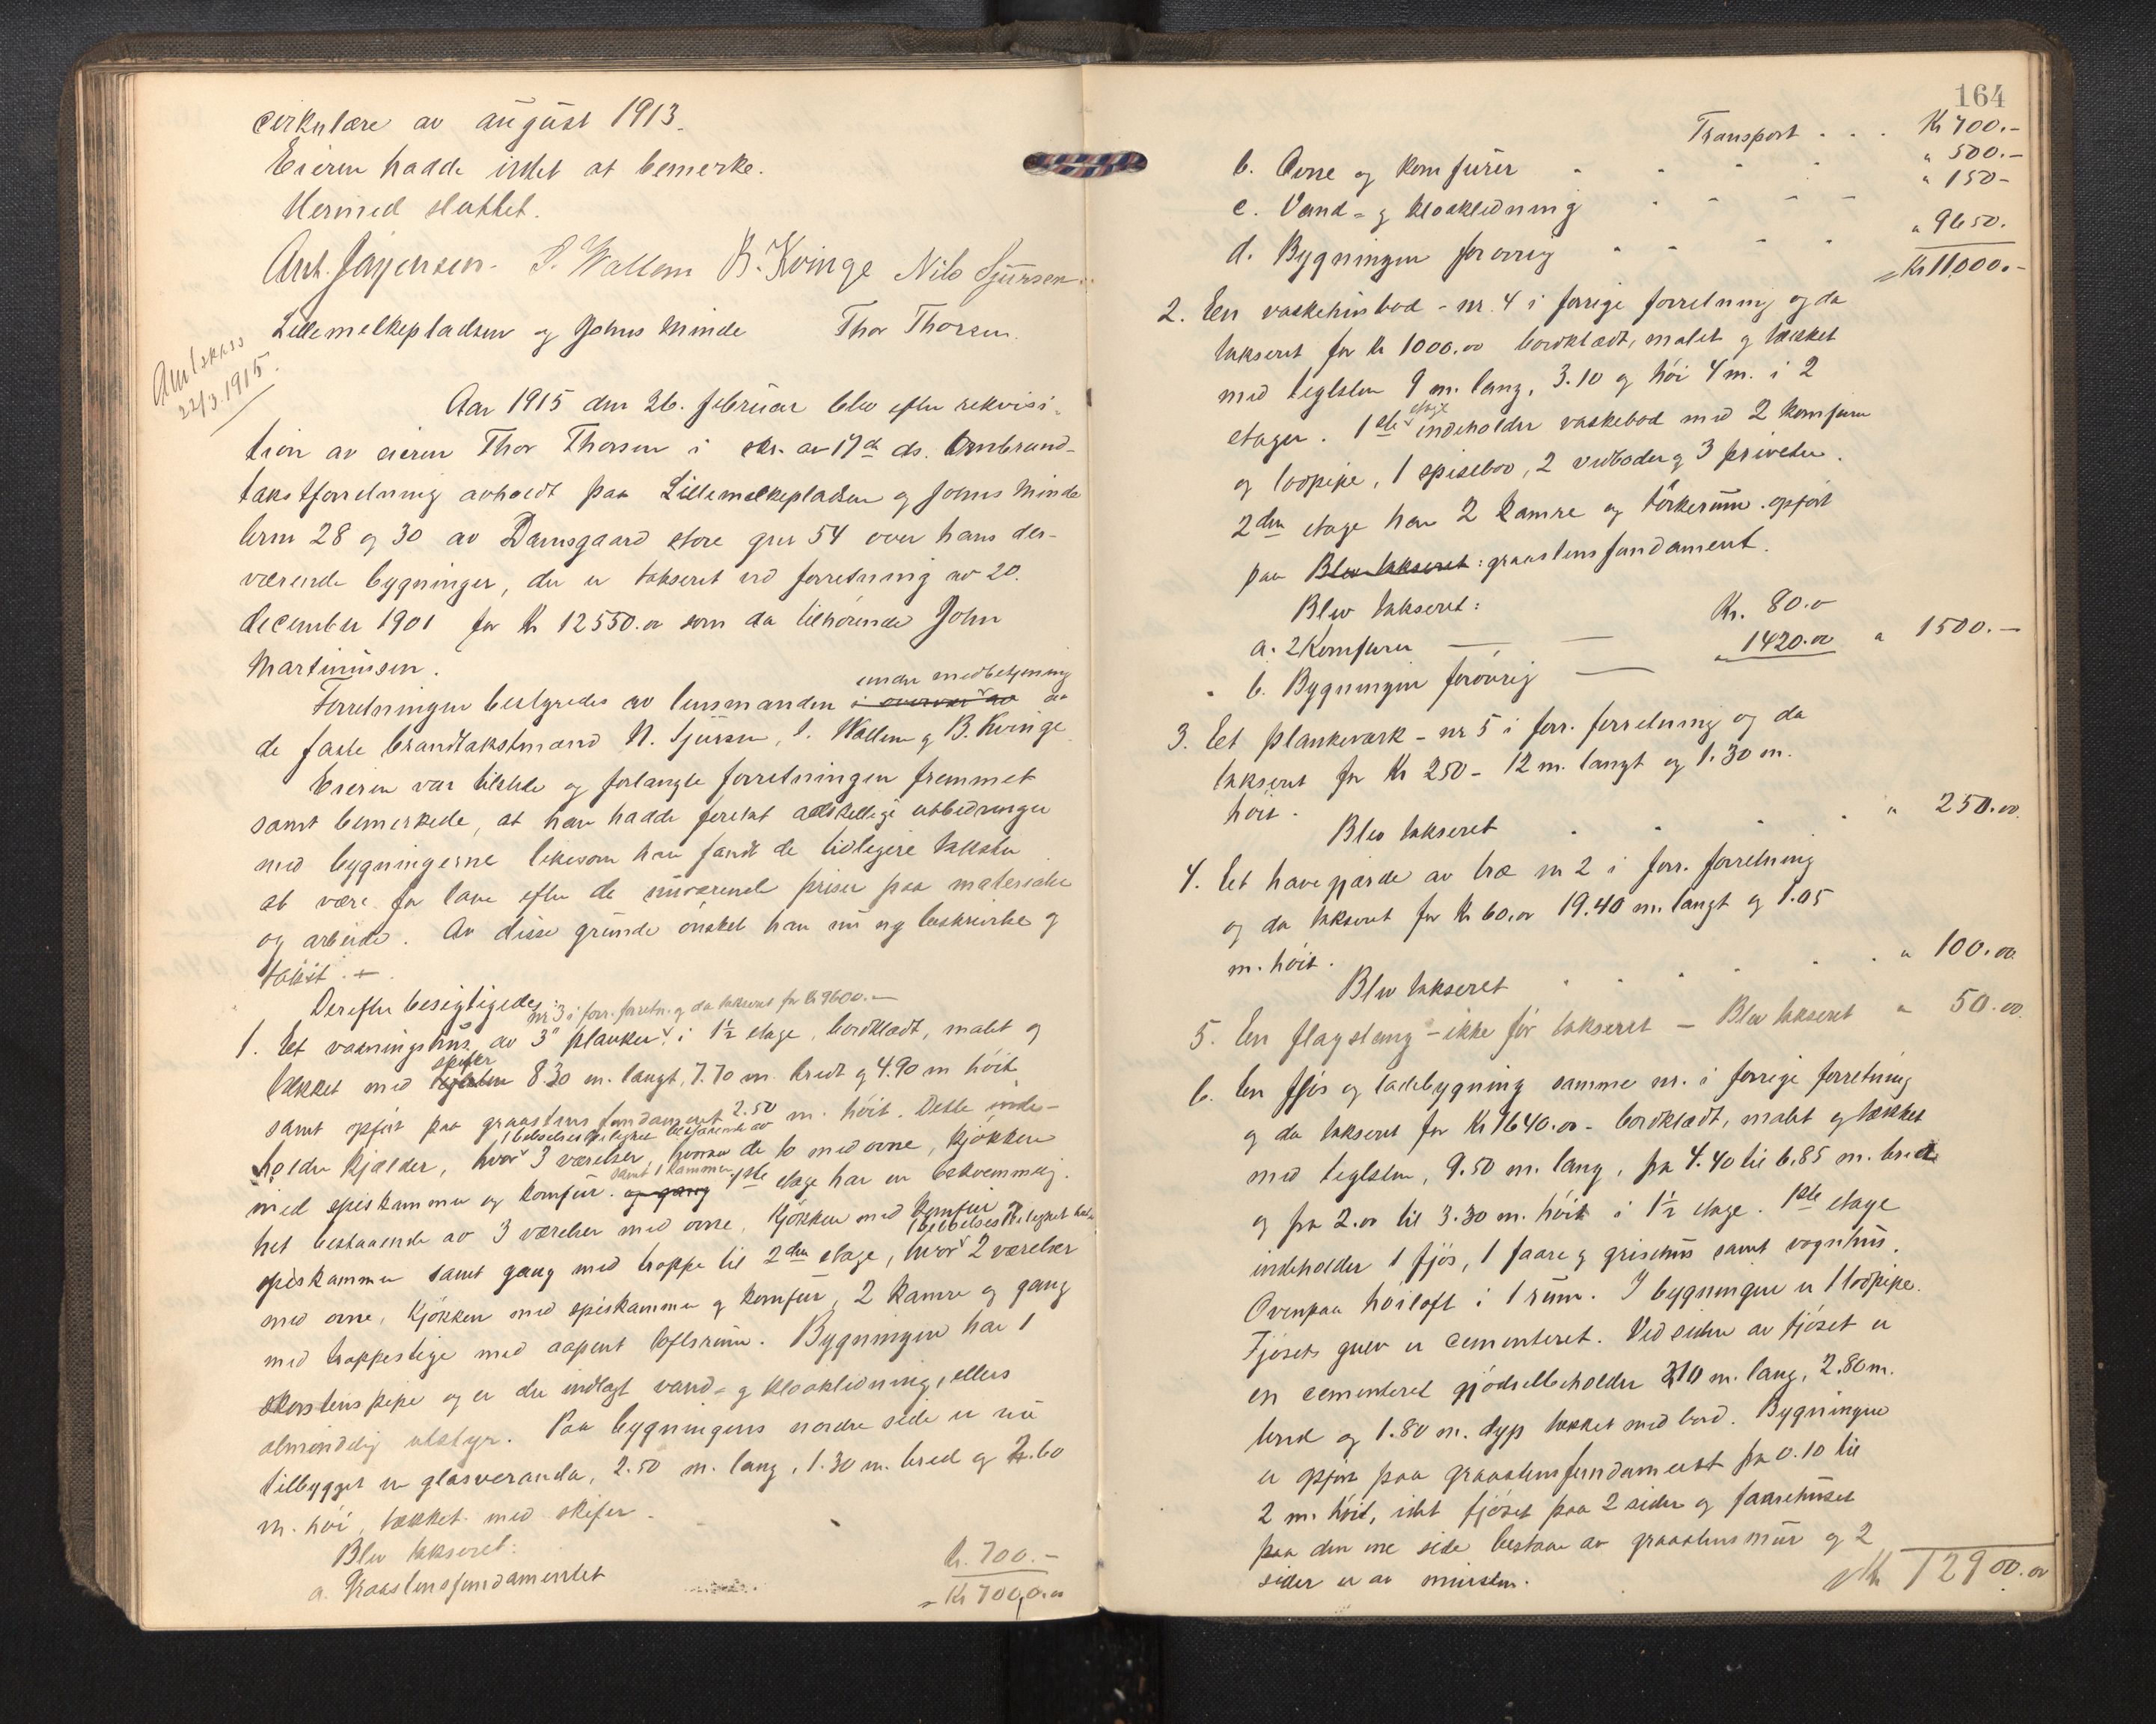 cirkulære av august 1913.
Eieren hadde intet at bemerke.
Hermed sluttet.
Ant. Jørgensen. S. Wallem B. Kvinge Nils Sjursen
Lillemelkepladsen og Johns Minde Thor Thorsen.
Amtskass
22/3.1915.
Aar 1915 den 26. februar blev efter rekvisi-
tion av eieren Thor Thorsen i skr. av 17d ds. Ombrand-
takstforretning avholdt paa Lillemelkepladsen og Johns Minde
brnr 28 og 30 av Damsgaard store gnr 54 over hans der-
værende bygninger, der er takseret ved forretning av 20.
december 1901 for Kr 12550.00 som da tilhørende John
Martinussen.
Forretningen bestyredes av lensmanden i overvær av under medbetjening av
de faste brandtakstmænd N. Sjursen, S. Wallem og B. Kvinge
Eieren var tilstede og forlangte forretningen fremmet
samt bemerkede, at han hadde foretat adskellige utbedringer
med bygningerne likesom han fandt de tidligere takster
at være for lave efter de nuværende priser paa materialer
og arbeide. Av disse grunde ønsket han nu ny beskrivelse og
takst.
Derefter besigtigedes:
nr 3 i forr. forretn. og da takseret for Kr 9600.-
1. Et vaaningshus av 3" planker i 1½ etage, bordklædt, malet og
tækket med teglsten skifer 8.30 m. langt, 7.70 m. bredt og 4.90 m høit
samt opført paa graastens fundament 2.50 m. høit. Dette inde-
holder kjælder, hvor 1 beboelsesleilighet bestaaende av 3 værelser, hvorav de to med ovne, kjøkken
med spiskammer og komfur. og gang samt 1 kammer 1ste etage har en bekvemmelig-
het bestaaende av 3 værelser med ovne, kjøkken med komfur
spiskammer samt gang med trappe til 2den etage, hvor 1 beboelsesleilighet 2 værelser
med ovne, kjøkken med spiskammer og komfur, 2 kamre og gang
med trappestige med aapent loftsrum. Bygningen har 1
skorstenspipe og er der indlagt vand- og kloakledning, ellers
almindelig utstyr. Paa bygningens nordre side er nu
tilbygget en glasveranda, 2.50 m. lang, 1.30 m. bred og 2.60
m. høi, tækket med skifer.
Blev takseret:
a. Graastensfundamentet Kr. 700.-
Kr 700,0.00
164
Transport . . . Kr 700.-
b. Ovne og komfurer " 500.-
c. Vand- og kloakledning " 150-
d. Bygningen forøvrig " 9650.
Kr 11,000.-
2. En vaskehusbod - nr. 4 i forrige forretning og da
takseret for kr 1000.00 bordklædt, malet og tækket
med teglsten 9 m. lang, 3.10 og høi 4 m. i 2
etager. 1ste etage indeholder vaskebod med 2 komfurer
og lodpipe, 1 spisebod, 2 vedboder og 3 priveter.
2den etage har 2 kamre og tørkerum. opført
paa Blev takseret: graastensfundament.
Blev takseret:
a. 2 Komfurer Kr. 80.00
b. Bygningen forøvrig " 1420.00 " 1500.-
3. Et plankeværk - nr 5 i forr. forretning og da
takseret for Kr 250- 12 m. langt og 1.30 m.
høit.
Blev takseret " 250.00
4. Et havegjærde av træ nr 2 i forr. forretning
og da takseret for Kr 60.00 19.40 m. langt og 1.05
m. høit.
Blev takseret " 100.00
5. En flagstang - ikke før takseret - Blev takseret " 50.00
6. En fjøs og ladebygning samme nr. i forrige forretning
og da takseret for Kr 1640.00 - bordklædt, malet og tækket
med teglsten, 9.50 m. lang, fra 4.40 til 6.85 m. bred
og fra 2.00 til 3.30 m. høit i 1½ etage. 1ste etage
indeholder 1 fjøs, 1 faare og grisehus samt vognhus.
Ovenpaa høiloft i 1 rum. I bygningen er 1 lodpipe.
Fjøsets gulv er cementeret. Ved siden av fjøset er
en cementeret gjødselbeholder 310 m. lang, 2.80 m.
bred og 1.80 m. dyp tækket med bord. Bygningen
er opført paa graastensfundament fra 0.10 til
2 m. høit, idet fjøset paa 2 sider og faarehuset
paa den ene side bestaar av graastensmur og 2
sider er av mursten.
Kr 12900.00